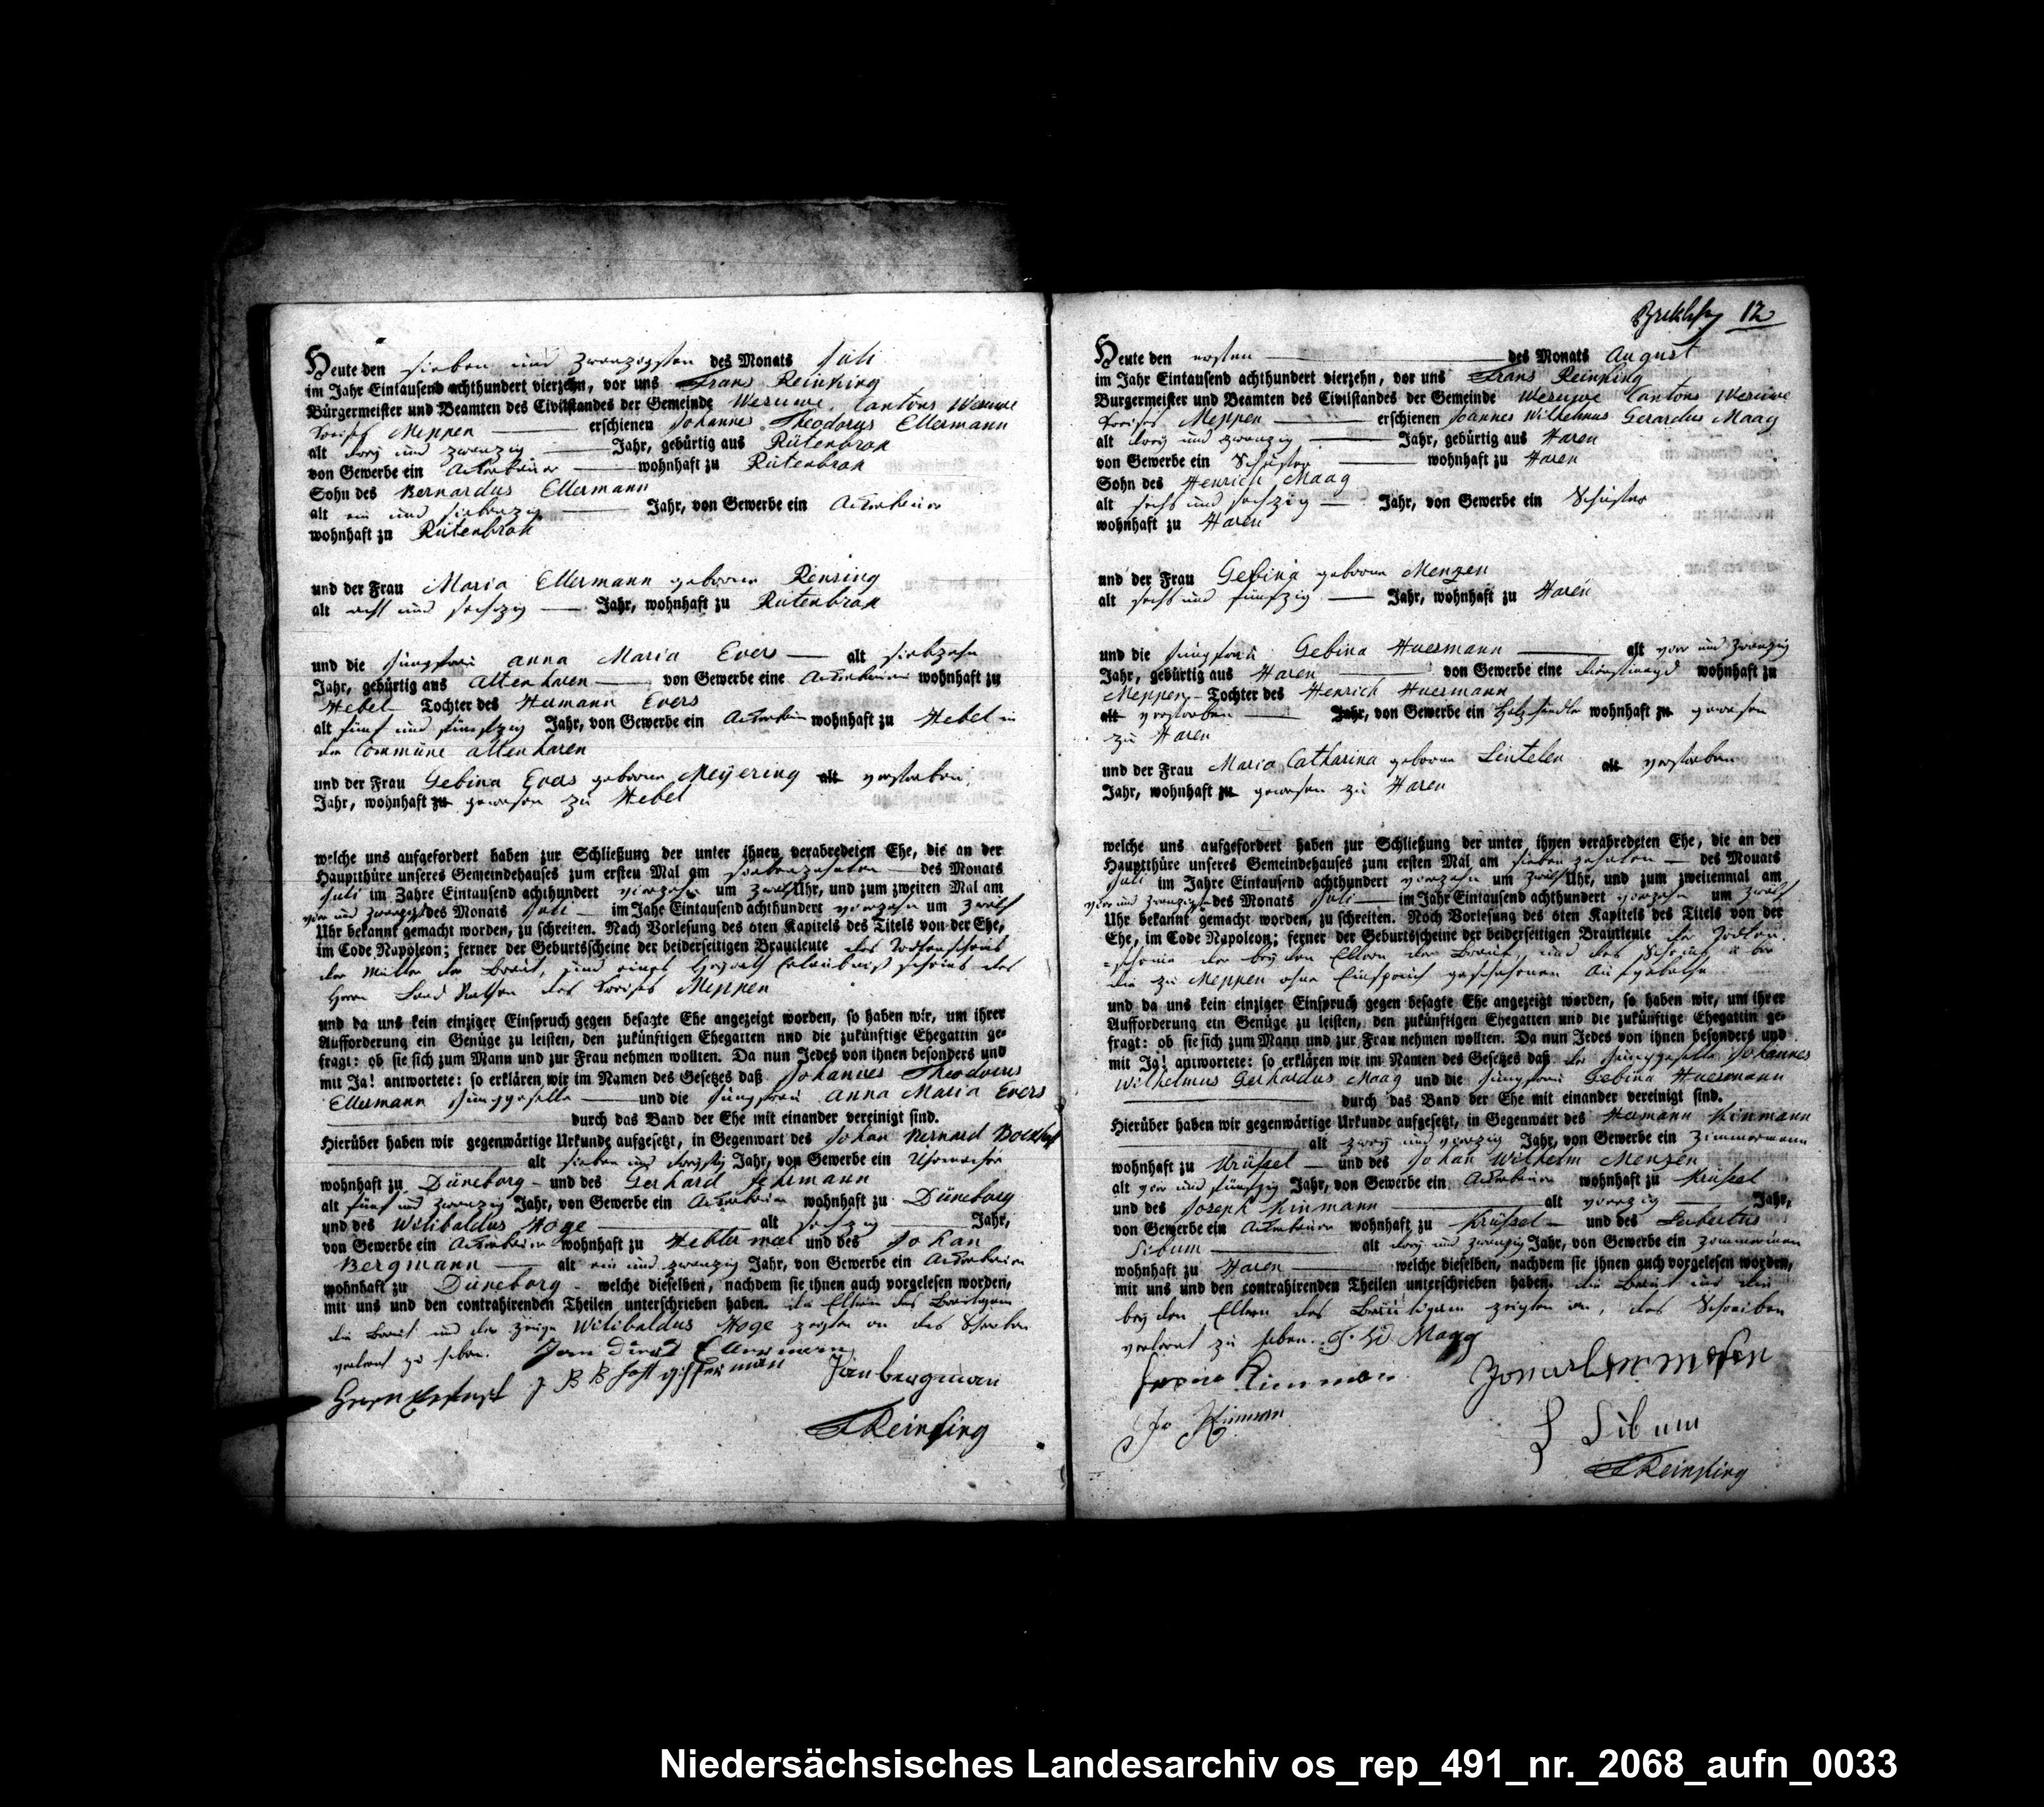 Heute den sieben und zwanzigsten des Monats Juli
im Jahr Eintausend achthundert vierzehn, vor uns Frans Reinking
Bürgermeister und Beamten des Civilstandes der Gemeinde Wesuwe Cantons Wesuwe
Kreises Meppen erschienen Johannes Theodorus Ellermann
alt drey und zwanzig Jahr, gebürtig aus Rütenbrok
von Gewerbe ein Ackerbauer wohnhaft zu Rütenbrok
Sohn des Bernardus Ellermann
alt ein und siebenzig Jahr, von Gewerbe ein Ackerbauer
wohnhaft zu Rütenbrok
und der Frau Maria Ellermann geborne Rensing
alt acht und sechzig Jahr, wohnhaft zu Rütenbrok
und die Jungfrau Anna Maria Evers alt siebzehn
Jahr, gebürtig aus Altenharen von Gewerbe eine Ackerbauerin wohnhaft zu
Hebel Tochter des Hermann Evers
alt fünf und fünfzig Jahr, von Gewerbe ein Ackerbauer wohnhaft zu Hebel in
der Commüne Altenharen
und der Frau Gebina Evers geborne Meÿering alt verstorben
Jahr, wohnhaft zu gewesen zu Hebel
welche uns aufgefordert haben zur Schließung der unter ihnen verabredeten Ehe, die an der
Hauptthüre unseres Gemeindehauses zum ersten Mal am siebenzehnten des Monats
Juli im Zahre Eintausend achthundert vierzehn um zwölf Uhr, und zum zweiten Mal am
vier und zwanzigst des Monats Juli im Jahe Eintausend achthundert vierzehn um zwölf
Uhr bekannt gemacht worden, zu schreiten. Nach Vorlesung des 6ten Kapitels des Titels von der Ehe,
im Code Napoleon; ferner der Geburtsscheine der beiderseitigen Brautleute des Todtenscheins
der Mutter der Braut, und eines Heyraths Erlaubniß scheins des
Herrn Land Rathen des Kreises Meppen
und da uns kein einziger Einspruch gegen besagte Ehe angezeigt worden, so haben wir, um ihrer
Aufforderung ein Genüge zu leisten, den zukünftigen Ehegatten und die zukünftige Ehegattin ge-
fragt: ob sie sich zum Mann und zur Frau nehmen wollten. Da nun Jedes von ihnen besonders und
mit Ja! antwortete: so erklären wir im Namen des Gesetzes daß Johannes Theodorus
Ellermann Junggeselle und die Jungfrau Anna Maria Evers
durch das Band der Ehe mit einander vereinigt sind.
Hierüber haben wir gegenwärtige Urkunde aufgesetzt, in Gegenwart des Johan Bernard
alt sieben und dreyßig Jahr, von Gewerbe ein Uhrmacher
wohnhaft zu Düneborg und des Gerhard
alt fünf und zwanzig Jahr, von Gewerbe ein Ackerbauer wohnhaft zu Düneborg
und des Wilibaldus Hoge alt sechzig Jahr,
von Gewerbe ein Ackerbauer wohnhaft zu und des Johan
Bergmann alt ein und zwanzig Jahr, von Gewerbe ein Ackerbauer
wohnhaft zu Düneborg welche dieselben, nachdem sie ihnen auch vorgelesen worden,
mit uns und den contrahirenden Theilen unterschrieben haben. die Eltern des Bräutigam
die Braut und der Zeuge Wilibaldus Hoge zeigten an das Schreiben
verlernt zu haben. Jan Dirck Ellermann
Jan bergman
FReinking
12
Heute den ersten des Monats August
im Jahr Eintausend achthundert vierzehn, vor uns Frans Reinking
Burgermeister und Beamten des Civilstandes der Gemeinde Wesuwe Cantons Wesuwe
Kreises Meppen erschienen Joannes Wilhelmus Gerardus Maag
alt drey und zwanzig Jahr, gebürtig aus Haren
von Gewerbe ein Schüster wohnhaft zu Haren
Sohn des Henrich Maag
alt sechs und sechzig Jahr, von Gewerbe ein Schüster
wohnhaft zu Haren
und der Frau Gebina geborne Menzen
alt sechs und fünfzig Jahr, wohnhaft zu Haren
und die Jungfrau Gebina Huermann alt vier und zwanzig
Jahr, gebürtig aus Haren von Gewerbe eine Dienstmagd wohnhaft zu
Meppen Tochter des Henrich Huermann
alt verstorben Jahr, von Gewerbe ein wohnhaft zu gewesen
zu Haren
und der Frau Maria Catharina geborne Lintelen alt verstorben
Jahr, wohnhaft zu gewesen zu Haren
welche uns aufgefordert haben zur Schließung der unter ihnen verabredeten Ehe, die an der
Hauptthüre unseres Gemeindehauses zum ersten Mal am siebenzehnten des Monats
Juli im Jahre Eintausend achthundert vierzehn um zwölf Uhr, und zum zweitenmal am
vier und zwanzigst des Monats Juli im Jahr Eintausend achthundert vierzehn um zwölf
Uhr bekannt gemacht worden, zu schreiten. Noch Vorlesung des 6ten Kapitels des Titels von der
Ehe, im Code Napoleon; ferner der Geburtsscheine der beiderseitigen Brautleute der Todten-
scheine der beyden Eltern der Braut, und des Scheins über
die zu Meppen ohne Einspruch geschehenen Aufgebothe
und da uns kein einziger Einspruch gegen besagte Ehe angezeigt worden, so haben wir, um ihrer
Aufforderung ein Genüge zu leisten, den zukünftigen Ehegatten und die zukünftige Ehegattin ge-
fragt: ob sie sich zum Mann und zur Frau nehmen wollten. Da nun Jedes von ihnen besonders und
mit Ja! antwortete: so erklären wir im Namen des Gesetzes daß der Junggeselle Johannes
Wilhelmus Gerhardus Maag und die Jungfrau Gebina Huermann
durch das Band der Ehe mit einander vereinigt sind.
Hierüber haben wir gegenwärtige Urkunde aufgesetzt, in Gegenwart des Hermann Kinmann
alt zwey und vierzig Jahr, von Gewerbe ein Zimmermann
wohnhaft zu Krüssel und des Johan Wilhelm Menzen
alt vier und fünfzig Jahr, von Gewerbe ein Ackerbauer wohnhaft zu Krüssel
und des Joseph Kinmann alt vierzig Jahr,
von Gewerbe ein Ackerbauer wohnhaft zu Krüssel und des Lubertus
Sibum alt drey und zwanzig Jahr, von Gewerbe ein Zimmerman
wohnhaft zu Haren welche dieselben, nachdem sie ihnen auch vorgelesen worden,
mit uns und den contrahirenden Theilen unterschrieben haben. die Braut und die
beyden Eltern des Bräutigam zeigten an, das Schreiben
verlernt zu haben. Maag
Kinman
Jo Kinman
L Sibum
FReinking
Niedersächsisches Landesarchiv os_rep_491_nr._2068_aufn_0033